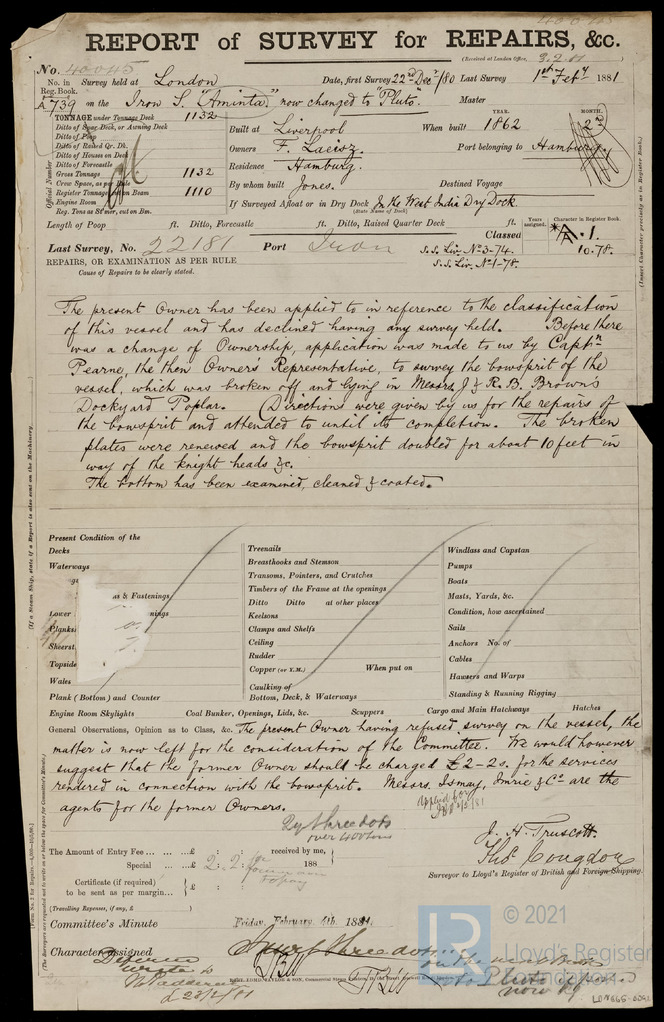 40045
REPORT of SURVEY for REPAIRS, &c.
(Received at London Office, 3.2.81
No. 40045
No. in Reg. Book.
Survey held at London Date, first Survey 22nd Decr /80 Last Survey 1st Feby 1881
739 on the Iron S. "Aminta" now changed to "Pluto". Master
TONNAGE under Tonnage Deck 1132
Ditto of Spar Deck, or Awning Deck
Ditto of Poop
Ditto of Raised Qr. Dk.
Ditto of Houses on Deck
Ditto of Forecastle
Gross Tonnage 1132
Crew Space, as per Rule
Register Tonnage on Beam 1110
Engine Room
Reg. Tons as St'mer, cut on Bm.
Official Number
Built at Liverpool When built YEAR. 1862 MONTH. 2
Owners F. Laeisz. Port belonging to Hamburg.
Residence Hamburg.
By whom built Jones. Destined Voyage
If Surveyed Afloat or in Dry Dock In the West India Dry Dock.
(State Name of Dock.)
Length of Poop ft. Ditto, Forecastle ft. Ditto, Raised Quarter Deck ft.
Years assigned. Character in Register Book.
Last Survey, No. 22181 Port Iron Classed A.1.
10.78.
S.S. Liv. No 3-74.
S.S. Liv. No 1-78.
REPAIRS, OR EXAMINATION AS PER RULE
Cause of Repairs to be clearly stated.
The present Owner has been applied to in reference to the classification
of this vessel and has declined having any survey held. Before there
was a change of Ownership, application was made to us by Captn
Pearne, the then Owner's Representative, to survey the bowsprit of the
vessel, which was broken off and lying in Messrs J. & R. B. Brown's
Dockyard Poplar. Directions were given by us for the repairs of
the bowsprit and attended to until its completion. The broken
plates were renewed and the bowsprit doubled for about 10 feet in
way of the knight heads &c.
The bottom has been examined, cleaned & coated.
Present Condition of the
Decks
Waterways
& Fastenings
Lower
Planks
Sheerst
Topside
Wales
Plank (Bottom) and Counter
Treenails
Breasthooks and Stemson
Transoms, Pointers, and Crutches
Timbers of the Frame at the openings
Ditto Ditto at other places
Keelsons
Clamps and Shelfs
Ceiling
Rudder
Copper (or Y.M.) When put on
Caulking of Bottom, Deck, & Waterways
Windlass and Capstan
Pumps
Boats
Masts, Yards, &c.
Condition, how ascertained
Sails
Anchors No. of
Cables
Hawsers and Warps
Standing & Running Rigging
Engine Room Skylights Coal Bunker, Openings, Lids, &c. Scuppers Cargo and Main Hatchways Hatches
General Observations, Opinion as to Class, &c. The present Owner having refused survey on the vessel, the
matter is now left for the consideration of the Committee. We would however
suggest that the former Owner should be charged £2-2s. for the services
rendered in connection with the bowsprit. Messrs. Ismay, Imrie & Co are the
agents for the former Owners.
Applied for
three dots
over 400 tons
The Amount of Entry Fee ... ... ...£ : : received by me,
Special ... ...£ 2 : 2 : 188
Certificate (if required) to be sent as per margin... £ : :
(Travelling Expenses, if any, £ )
J. H. Truscott.
Thos. Congdon
Surveyor to Lloyd's Register of British and Foreign Shipping.
Committee's Minute Friday, February 4th. 1881.
Character assigned
three dots
Pluto
© 2021
LR
Lloyd's Register
Foundation
LDN665-0091
(If a Steam Ship, state if a Report is also sent on the Machinery.
(Insert Character precisely as in Register Book.)